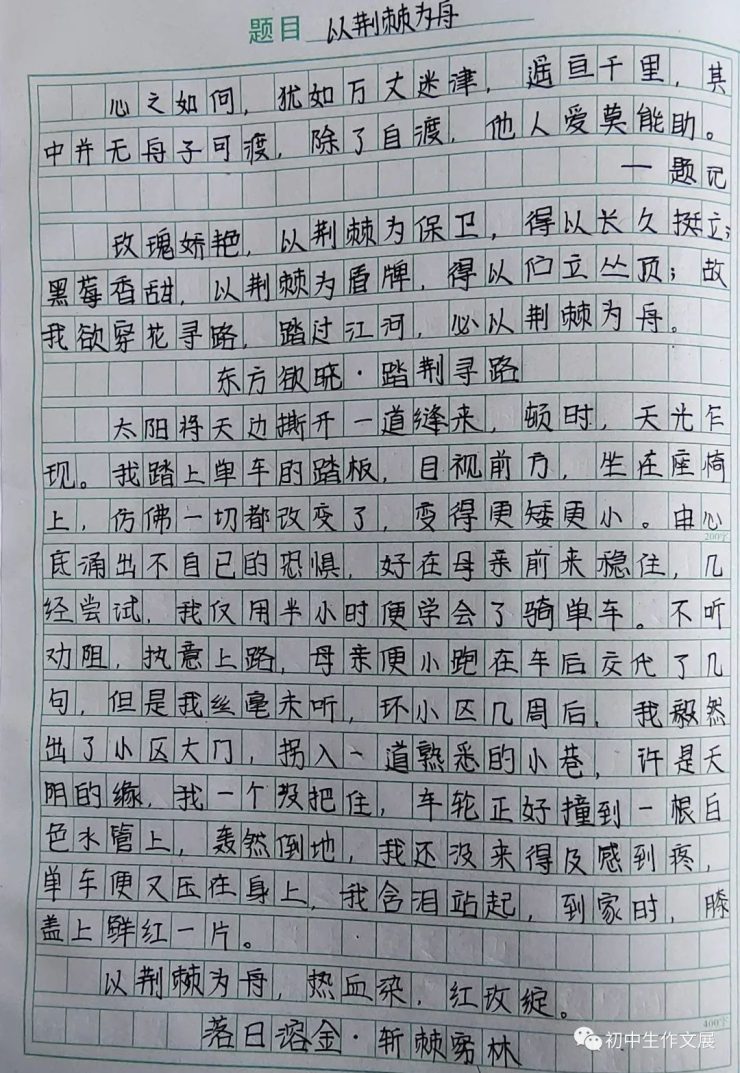 题目 以荆棘为舟
心之如何，犹如万丈迷津，遥亘千里，其
中并无舟子可渡，除了自渡，他人爱莫能助。
—题记
玫瑰娇艳，以荆棘为保卫，得以长久挺立；
黑莓香甜，以荆棘为盾牌，得以伫立丛顶；故
我欲穿花寻路，踏过江河，必以荆棘为舟。
东方欲晓·踏荆寻路
太阳将天边撕开一道缝来，顿时，天光乍
现。我踏上单车的踏板，目视前方，坐在座椅
上，仿佛一切都改变了，变得更矮更小。由心
底涌出不自已的恐惧，好在母亲前来稳住，几
经尝试，我仅用半小时便学会了骑单车。不听
劝阻，执意上路，母亲便小跑在车后交代了几
句，但是我丝毫未听，环小区几周后，我毅然
出了小区大门，拐入一道熟悉的小巷，许是天
阴的缘，我一个没把住，车轮正好撞到一根白
色水管上，轰然倒地，我还没来得及感到疼，
单车便又压在身上，我含泪站起，到家时，膝
盖上鲜红一片。
以荆棘为舟，热血染，红玫绽。
落日溶金·斩棘穷林
200字
400字
初中生作文展